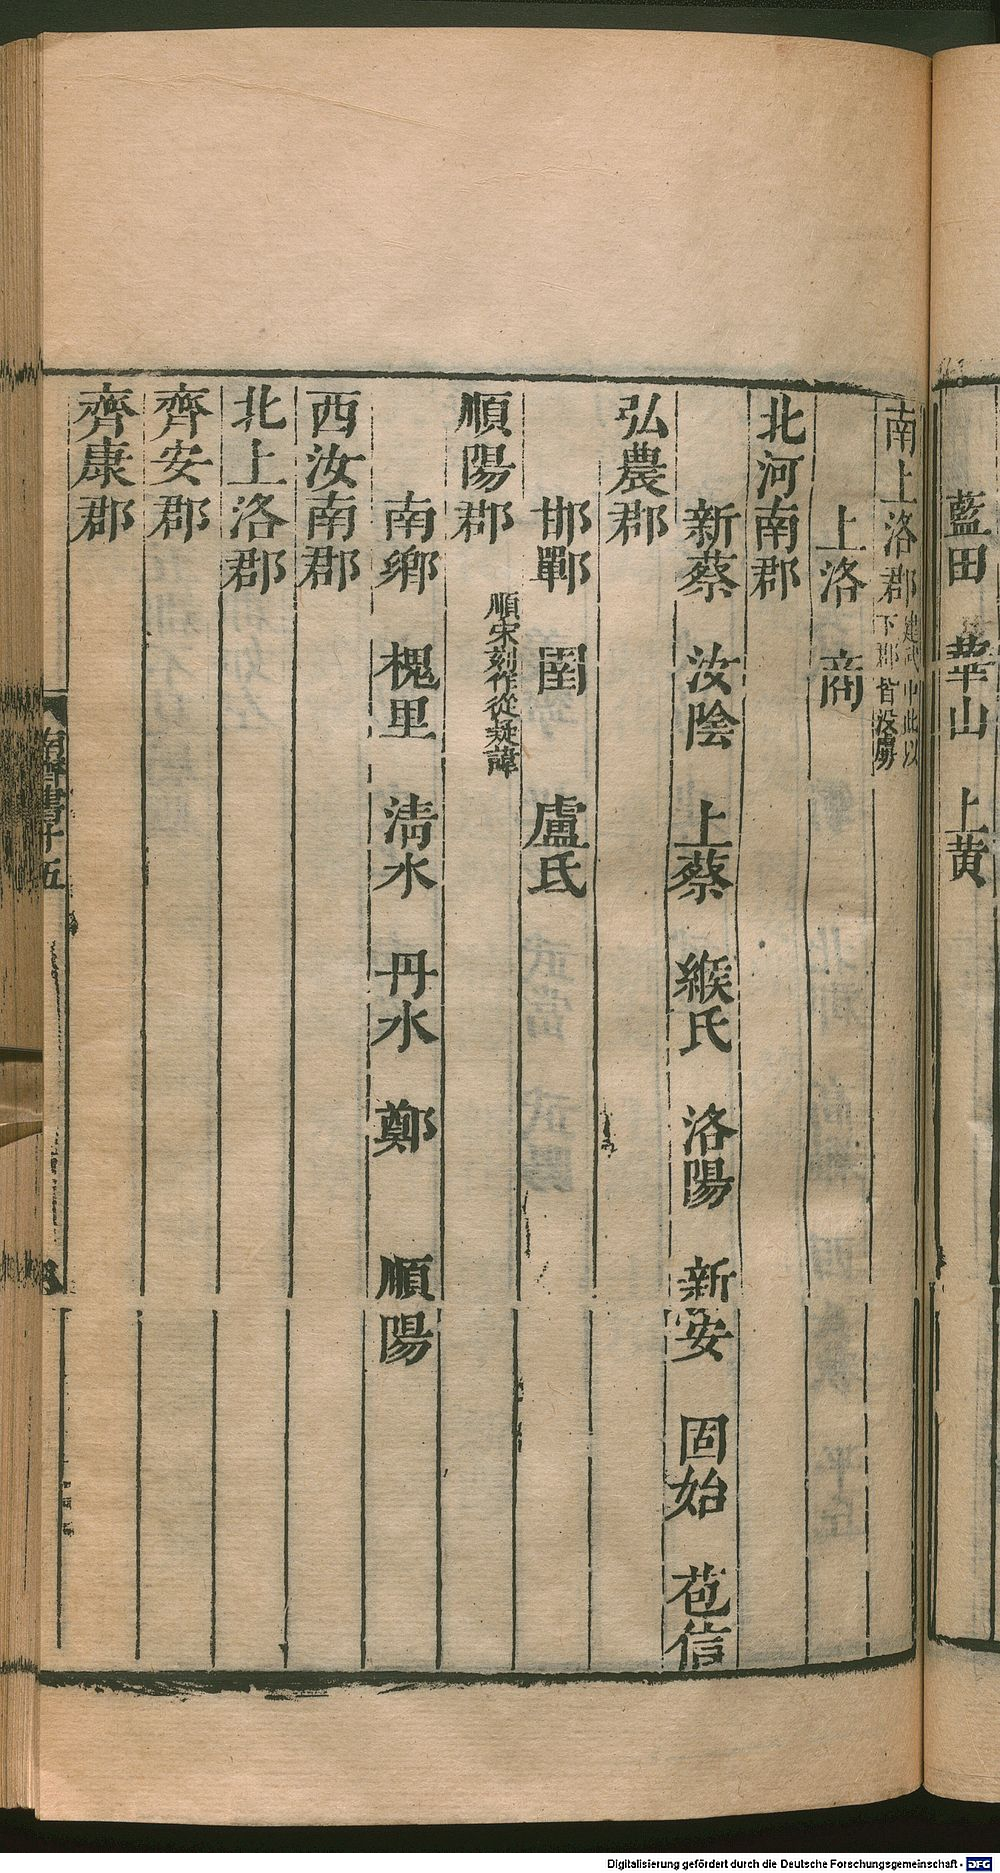 藍田　華山　上黄
南上洛郡建武中此以下郡皆没虜
上洛　商
北河南郡
新蔡　汝陰　上蔡　緱氏　洛陽　新安　固始　苞信
弘農郡
邯鄲　圉　盧氏
順陽郡順宋刻作從疑諱
南鄉　槐里　清水　丹水　鄭　順陽
西汝南郡
北上洛郡
齊安郡
齊康郡
南齊書十五
Digitalisierung gefördert durch die Deutsche Forschungsgemeinschaft - DFG